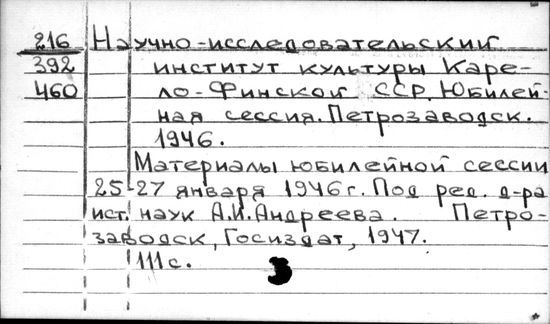 216 Научно-исследовательский
392 институт культуры Каре-
460 ло-Финской ССР. Юбилей-
ная сессия. Петрозаводск.
1946.
Материалы юбилейной сессии
25-27 января 1946 г. Под ред. д-ра
ист. наук А.И. Андреева. Петро-
заводск, Госиздат, 1947.
111 с.
3